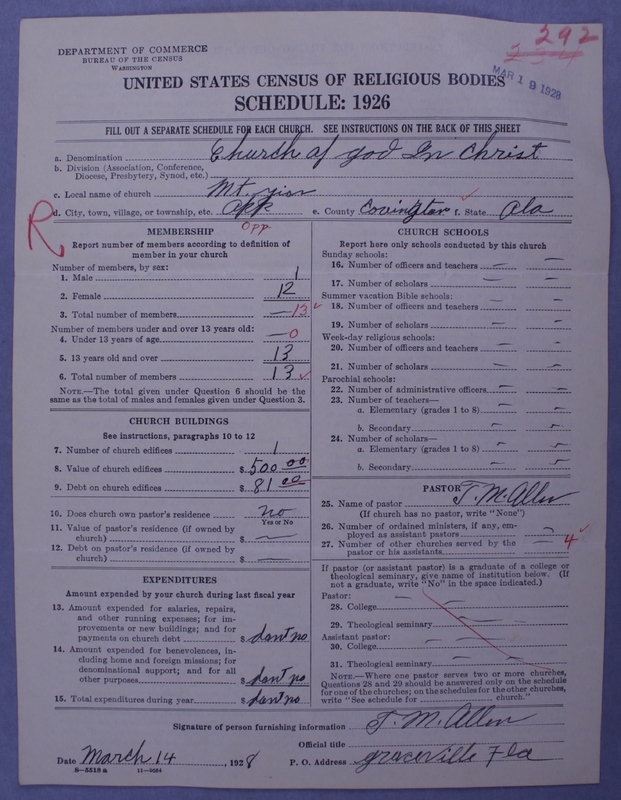 292
MAR 19 1928
DEPARTMENT OF COMMERCE
BUREAU OF THE CENSUS
WASHINGTON
UNITED STATES CENSUS OF RELIGIOUS BODIES
SCHEDULE: 1926
FILL OUT A SEPARATE SCHEDULE FOR EACH CHURCH. SEE INSTRUCTIONS ON THE BACK OF THIS SHEET
a. Denomination Church of god In Christ
b. Division (Association, Conference, Diocese, Presbytery, Synod, etc.)
c. Local name of church Mt. zion
d. City, town, village, or township, etc. Opp e. County Covington f. State Ala
R
Opp
MEMBERSHIP
Report number of members according to definition of
member in your church
Number of members, by sex:
1. Male 1
2. Female 12
3. Total number of members — 13
Number of members under and over 13 years old:
4. Under 13 years of age — 0
5. 13 years old and over 13
6. Total number of members 13
NOTE.—The total given under Question 6 should be the
same as the total of males and females given under Question 3.
CHURCH BUILDINGS
See instructions, paragraphs 10 to 12
7. Number of church edifices 1
8. Value of church edifices $ 500 00
9. Debt on church edifices $ 81 00
10. Does church own pastor's residence no
Yes or No
11. Value of pastor's residence (if owned by
church) $ —
12. Debt on pastor's residence (if owned by
church) $ —
EXPENDITURES
Amount expended by your church during last fiscal year
13. Amount expended for salaries, repairs,
and other running expenses; for im-
provements or new buildings; and for
payments on church debt $ dont no
14. Amount expended for benevolences, in-
cluding home and foreign missions; for
denominational support; and for all
other purposes $ dont no
15. Total expenditures during year $ dont no
CHURCH SCHOOLS
Report here only schools conducted by this church
Sunday schools:
16. Number of officers and teachers — —
17. Number of scholars — —
Summer vacation Bible schools:
18. Number of officers and teachers — —
19. Number of scholars — —
Week-day religious schools:
20. Number of officers and teachers — —
21. Number of scholars — —
Parochial schools:
22. Number of administrative officers — —
23. Number of teachers—
a. Elementary (grades 1 to 8) — —
b. Secondary — —
24. Number of scholars—
a. Elementary (grades 1 to 8) — —
b. Secondary — —
PASTOR
25. Name of pastor T. M. Allen
(If church has no pastor, write "None")
26. Number of ordained ministers, if any, em-
ployed as assistant pastors —
27. Number of other churches served by the
pastor or his assistants — 4
If pastor (or assistant pastor) is a graduate of a college or
theological seminary, give name of institution below. (If
not a graduate, write "No" in the space indicated.)
Pastor:
28. College — —
29. Theological seminary — —
Assistant pastor:
30. College — —
31. Theological seminary — —
NOTE.—Where one pastor serves two or more churches,
Questions 28 and 29 should be answered only on the schedule
for one of the churches; on the schedules for the other churches,
write "See schedule for church."
Signature of person furnishing information T. M. Allen
Official title
Date March 14, 1928 P. O. Address graceville Fla
8-5518 a 11-9054